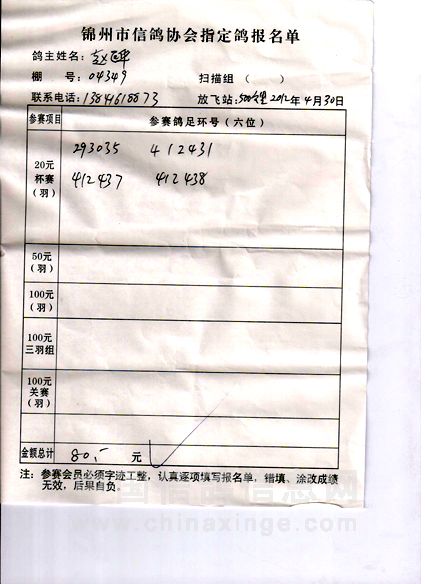 锦州市信鸽协会指定鸽报名单
鸽主姓名:赵
棚 号:04349 扫描组 ( )
联系电话:13841618873 放飞站:500公里 2012年4月30日
参赛项目 参赛鸽足环号(六位)
20元
杯赛
(羽)
293035 412431
412437 412438
50元
(羽)
100元
(羽)
100元
三羽组
100元
关赛
(羽)
金额总计 80.- 元
注:参赛会员必须字迹工整,认真逐项填写报名单,错填、涂改成绩
无效,后果自负。
中国信鸽信息网
www.chinaxinge.com